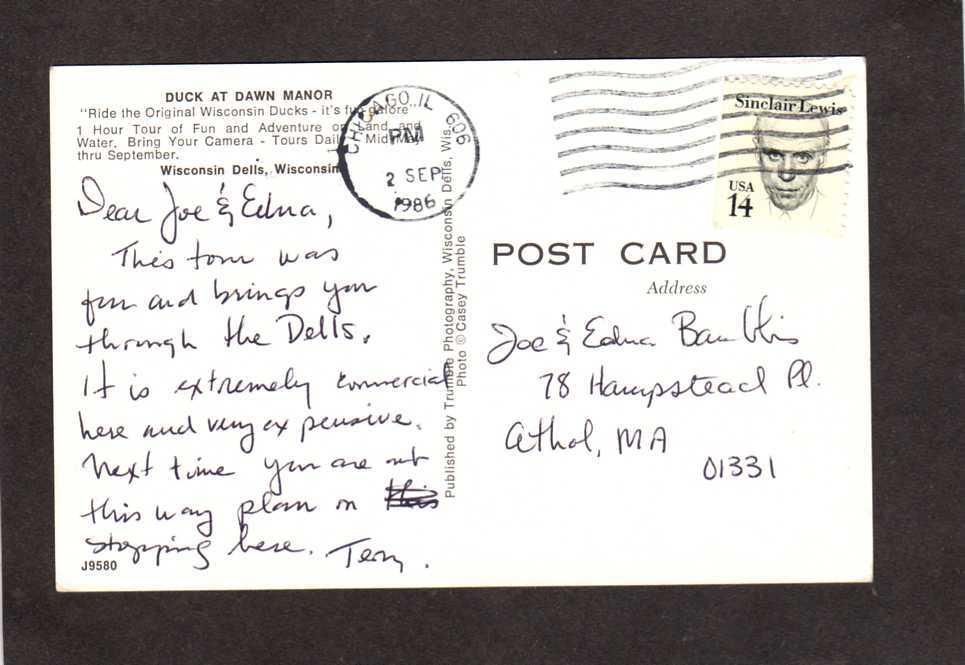 DUCK AT DAWN MANOR
"Ride the Original Wisconsin Ducks - it's fun galore
1 Hour Tour of Fun and Adventure on Land and
Water. Bring Your Camera - Tours Daily - Mid May
thru September.
Wisconsin Dells, Wisconsin
Dear Joe & Edna,
This tour was
fun and brings you
through the Dells.
It is extremely commercial
here and very expensive.
Next time you are out
this way plan on this
stopping here. Terry.
J9580
Published by Trumble Photography, Wisconsin Dells, Wis.
Photo © Casey Trumble
CHICAGO, IL 606
PM
2 SEP
1986
Sinclair Lewis
USA
14
POST CARD
Address
Joe & Edna
78 Hampstead Pl.
Athol, MA
01331